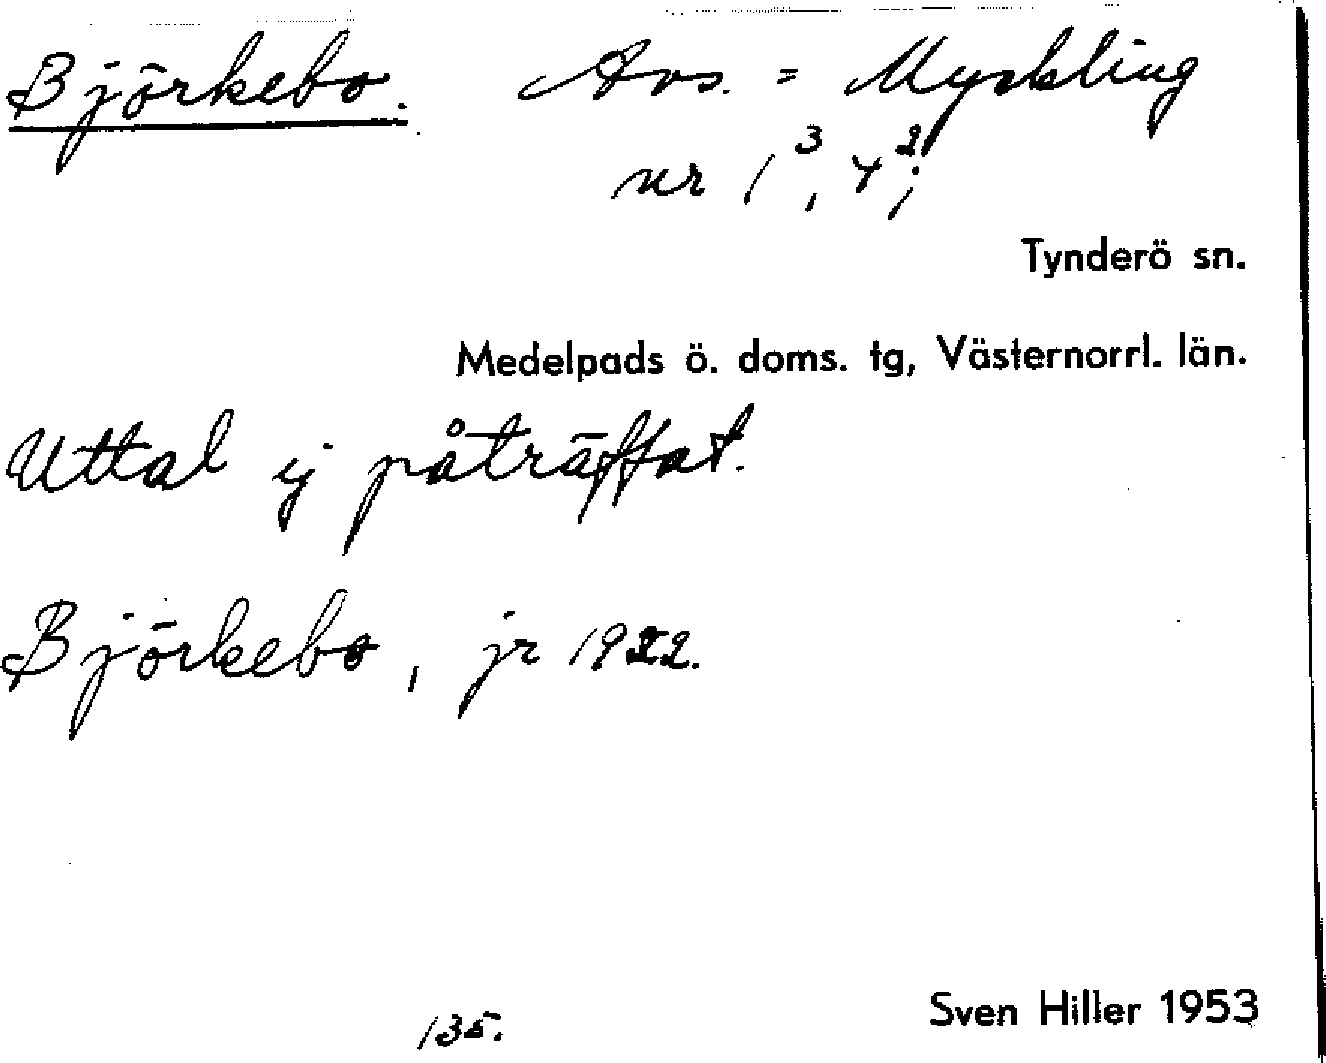 Björkebo. Avs. = Myckling
nr 1³, 4²;
Tynderö sn.
Medelpads ö. doms. tg, Västernorrl. län.
Uttal ej påträffat.
Björkebo, jr 1922.
135.
Sven Hiller 1953